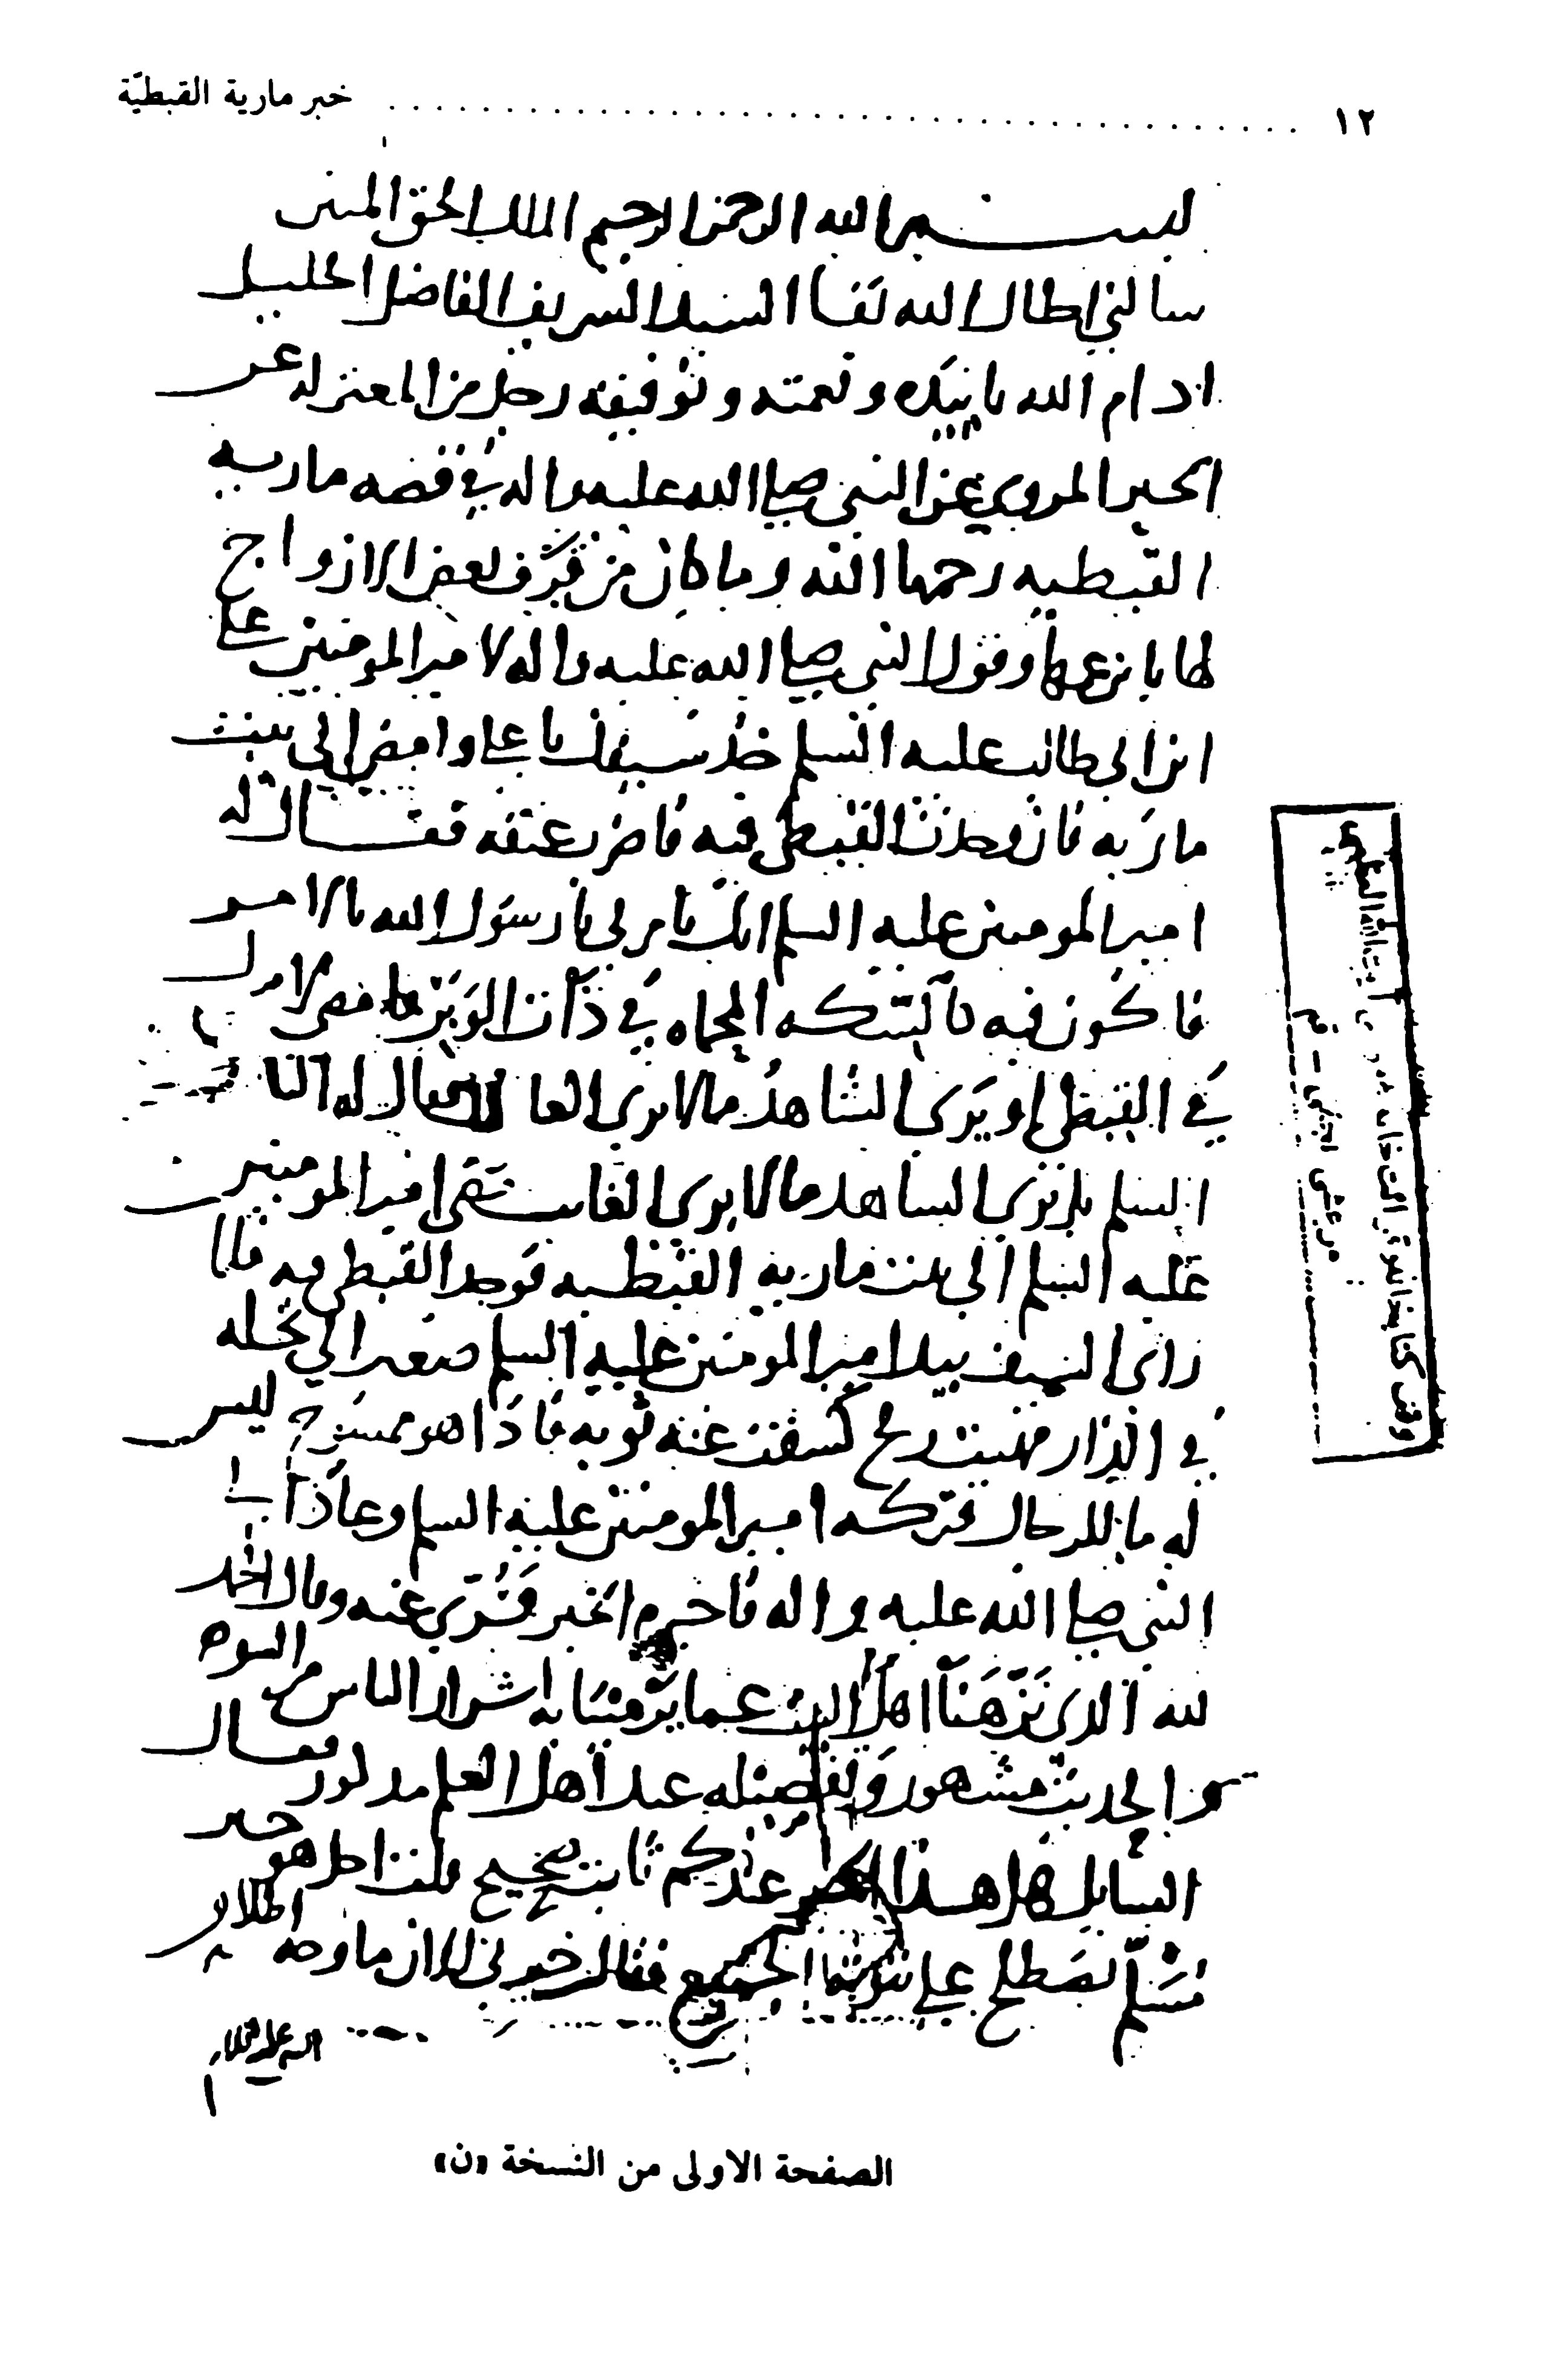 ١٢ خبر مارية القبطيّة
بسم الله الرحمن الرحيم الملك الحق المبين
سالني اطال الله بقا السيد الشريف الفاضل الجليل
ادام الله تاييده ونعمته وتوفيقه رجل من المعتزله عن
الخبر المروي عن النبي صلى الله عليه واله في قصه ماريه
القبطيه رحمها الله وما كان من قرف بعض الازواج
لها بابن عمها وقول النبي صلى الله عليه واله لامير المومنين علي
ابن ابي طالب عليه السلم خذ سيفك يا علي وامض الى بيت
ماريه فان وجدت القبطي فيه فاضرب عنقه فقال له
امير المومنين عليه السلم انك تامرني يا رسول الله بالامر
فاكون فيه كالسكه المحماه في ذات الوبر فامضي لامرك
في القبطي او يرى الشاهد ما لا يرى الغائب فقال له النبي
السلم بل يرى الشاهد ما لا يرى الغائب فمضى امير المومنين
عليه السلم الى بيت ماريه القبطيه فوجد القبطي فيه فلما
راى السيف بيد امير المومنين عليه السلم صعد الى نخله
في الدار فهبت ريح كشفت عنه ثوبه فاذا هو ممسوح ليس
له ما للرجال فتركه امير المومنين عليه السلم وعاد الى
النبي صلى الله عليه واله فاخبره الخبر فسري عنه وقال الحمد
لله الذي نزهنا اهل البيت عما يرمينا به اشرار الناس من السوء
والحديث مشهور وتفصيله عند اهل العلم مذكور فقال
السائل هل هذا الخبر عندكم ثابت صحيح قلت اجل هو خبر
مسلم يصطلح على ثبوته الجميع فقال خبرني الان ما وجه اطلاق
الصفحة الاولى من النسخة «ن»